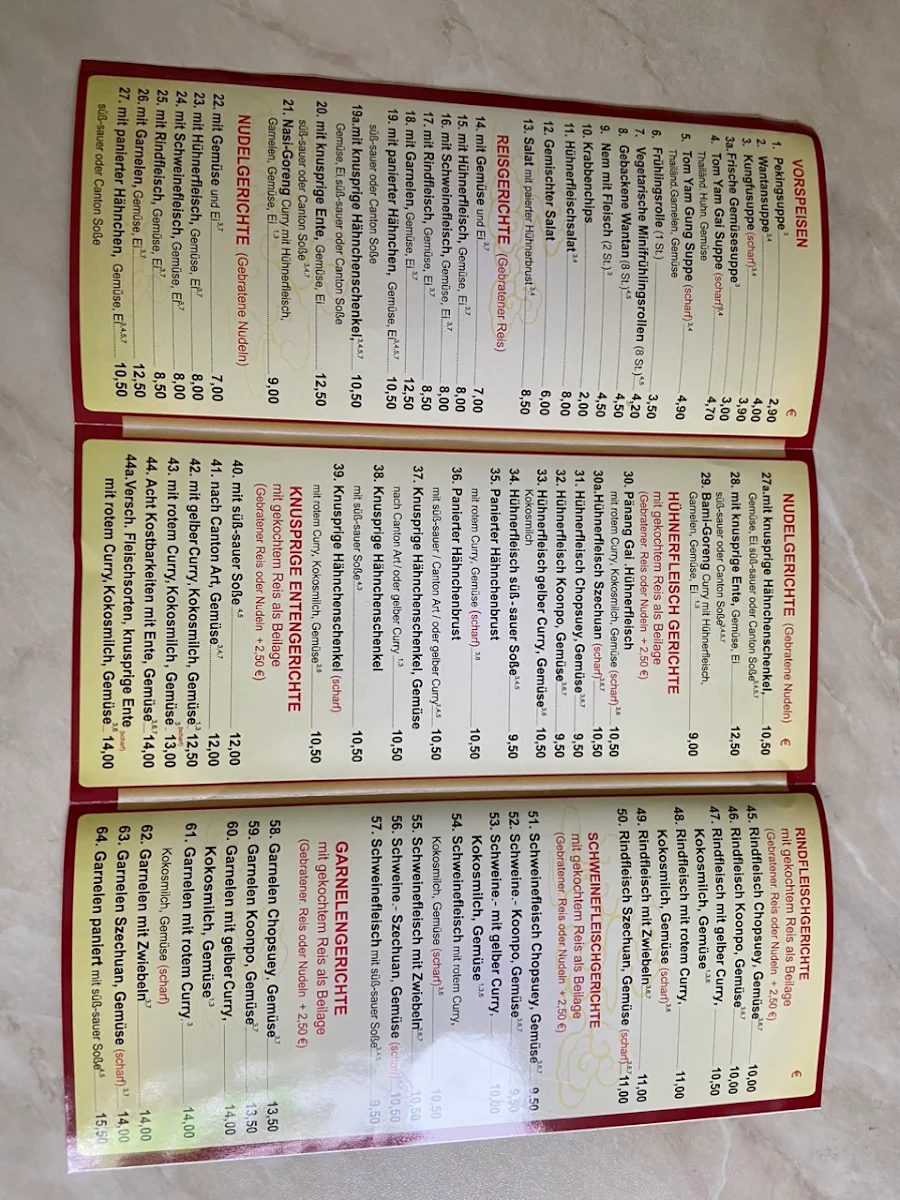 VORSPEISEN €
1. Pekingsuppe 3 2,90
2. Wantansuppe 3,4 4,00
3. Kungfusuppe (scharf) 3,4 3,90
3a. Frische Gemüsesuppe 3 3,00
4. Tom Yam Gai Suppe (scharf) 3,4 4,70
Thailänd. Huhn, Gemüse
5. Tom Yam Gung Suppe (scharf) 3,4 4,90
Thailänd.Garnelen, Gemüse
6. Frühlingsrolle (1 St.) 3,50
7. Vegetarische Minifrühlingsrollen (8 St.) 4,5 4,20
8. Gebackene Wantan (8 St.) 4,5 4,50
9. Nem mit Fleisch (2 St.) 3 4,50
10. Krabbenchips 2,00
11. Hühnerfleischsalat 3,4 8,00
12. Gemischter Salat 6,00
13. Salat mit paierter Hühnerbrust 3,4 8,50
REISGERICHTE (Gebratener Reis)
14. mit Gemüse und Ei 3,7 7,00
15. mit Hühnerfleisch, Gemüse, Ei 3,7 8,00
16. mit Schweinefleisch, Gemüse, Ei 3,7 8,00
17. mit Rindfleisch, Gemüse, Ei 3,7 8,50
18. mit Garnelen, Gemüse, Ei 3,7 12,50
19. mit panierter Hähnchen, Gemüse, Ei 3,4,5,7 10,50
süß-sauer oder Canton Soße
19a.mit knusprige Hähnchenschenkel, 3,4,5,7 10,50
Gemüse, Ei süß-sauer oder Canton Soße
20. mit knusprige Ente, Gemüse, Ei 12,50
süß-sauer oder Canton Soße 3,4,7
21. Nasi-Goreng Curry mit Hühnerfleisch,
Garnelen, Gemüse, Ei 1,3 9,00
NUDELGERICHTE (Gebratene Nudeln)
22. mit Gemüse und Ei 3,7 7,00
23. mit Hühnerfleisch, Gemüse, Ei 3,7 8,00
24. mit Schweinefleisch, Gemüse, Ei 3,7 8,00
25. mit Rindfleisch, Gemüse, Ei 3,7 8,50
26. mit Garnelen, Gemüse, Ei 3,7 12,50
27. mit panierter Hähnchen, Gemüse, Ei 3,4,5,7 10,50
süß-sauer oder Canton Soße
NUDELGERICHTE (Gebratene Nudeln) €
27a.mit knusprige Hähnchenschenkel, 10,50
Gemüse, Ei süß-sauer oder Canton Soße 3,4,5,7
28. mit knusprige Ente, Gemüse, Ei 12,50
süß-sauer oder Canton Soße 3,4,5,7
29. Bami-Goreng Curry mit Hühnerfleisch,
Garnelen, Gemüse, Ei 1,3 9,00
HÜHNERFLEISCH GERICHTE
mit gekochtem Reis als Beilage
(Gebratener Reis oder Nudeln + 2,50 €)
30. Pänang Gai .Hühnerfleisch
mit rotem Curry, Kokosmilch, Gemüse (scharf) 3,8 10,50
30a.Hühnerfleisch Szechuan (scharf) 3,6,7 10,50
31. Hühnerfleisch Chopsuey, Gemüse 3,6,7 9,50
32. Hühnerfleisch Koonpo, Gemüse 3,6,7 9,50
33. Hühnerfleisch gelber Curry, Gemüse 3,8 10,50
Kokosmilch
34. Hühnerfleisch süß - sauer Soße 3,4,5 9,50
35. Panierter Hähnchenbrust
mit rotem Curry, Gemüse (scharf) 3,8 10,50
36. Panierter Hähnchenbrust
mit süß-sauer / Canton Art / oder gelber Curry 1,4,5 10,50
37. Knusprige Hähnchenschenkel, Gemüse
nach Canton Art / oder gelber Curry 1,3 10,50
38. Knusprige Hähnchenschenkel
mit süß-sauer Soße 4,3 10,50
39. Knusprige Hähnchenschenkel (scharf)
mit rotem Curry, Kokosmilch, Gemüse 3,8 10,50
KNUSPRIGE ENTENGERICHTE
mit gekochtem Reis als Beilage
(Gebratener Reis oder Nudeln + 2,50 €)
40. mit süß-sauer Soße 4,5 12,00
41. nach Canton Art, Gemüse 3,4,7 12,00
42. mit gelber Curry, Kokosmilch, Gemüse 1,3 12,50
43. mit rotem Curry, Kokosmilch, Gemüse 3 (scharf) 13,00
44. Acht Kostbarkeiten mit Ente, Gemüse 3,6,7 14,00
44a.Versch. Fleischsorten, knusprige Ente (scharf)
mit rotem Curry, Kokosmilch, Gemüse 3,8 14,00
RINDFLEISCHGERICHTE €
mit gekochtem Reis als Beilage
(Gebratener Reis oder Nudeln + 2,50 €)
45. Rindfleisch Chopsuey, Gemüse 3,6,7 10,00
46. Rindfleisch Koonpo, Gemüse 3,6,7 10,00
47. Rindfleisch mit gelber Curry,
Kokosmilch, Gemüse 1,3,8 10,50
48. Rindfleisch mit rotem Curry,
Kokosmilch, Gemüse (scharf) 3,8 11,00
49. Rindfleisch mit Zwiebeln 3,6,7 11,00
50. Rindfleisch Szechuan, Gemüse (scharf) 3,6,7 11,00
SCHWEINEFLEISCHGERICHTE
mit gekochtem Reis als Beilage
(Gebratener Reis oder Nudeln + 2,50 €)
51. Schweinefleisch Chopsuey, Gemüse 3,6,7 9,50
52. Schweine.- Koonpo, Gemüse 3,6,7 9,50
53. Schweine.- mit gelber Curry,
Kokosmilch, Gemüse 1,3,8 10,00
54. Schweinefleisch mit rotem Curry,
Kokosmilch, Gemüse (scharf) 3,8 10,50
55. Schweinefleisch mit Zwiebeln 3,6,7 10,50
56. Schweine.- Szechuan, Gemüse (scharf) 10,50
57. Schweinefleisch mit süß-sauer Soße 3,4,5 9,50
GARNELENGERICHTE
mit gekochtem Reis als Beilage
(Gebratener Reis oder Nudeln + 2,50 €)
58. Garnelen Chopsuey, Gemüse 3,7 13,50
59. Garnelen Koonpo, Gemüse 3,7 13,50
60. Garnelen mit gelber Curry, 14,00
Kokosmilch, Gemüse 1,3
61. Garnelen mit rotem Curry 3 14,00
Kokosmilch, Gemüse (scharf)
62. Garnelen mit Zwiebeln 3,7 14,00
63. Garnelen Szechuan, Gemüse (scharf) 3,7 14,00
64. Garnelen paniert mit süß-sauer Soße 4,5 15,50